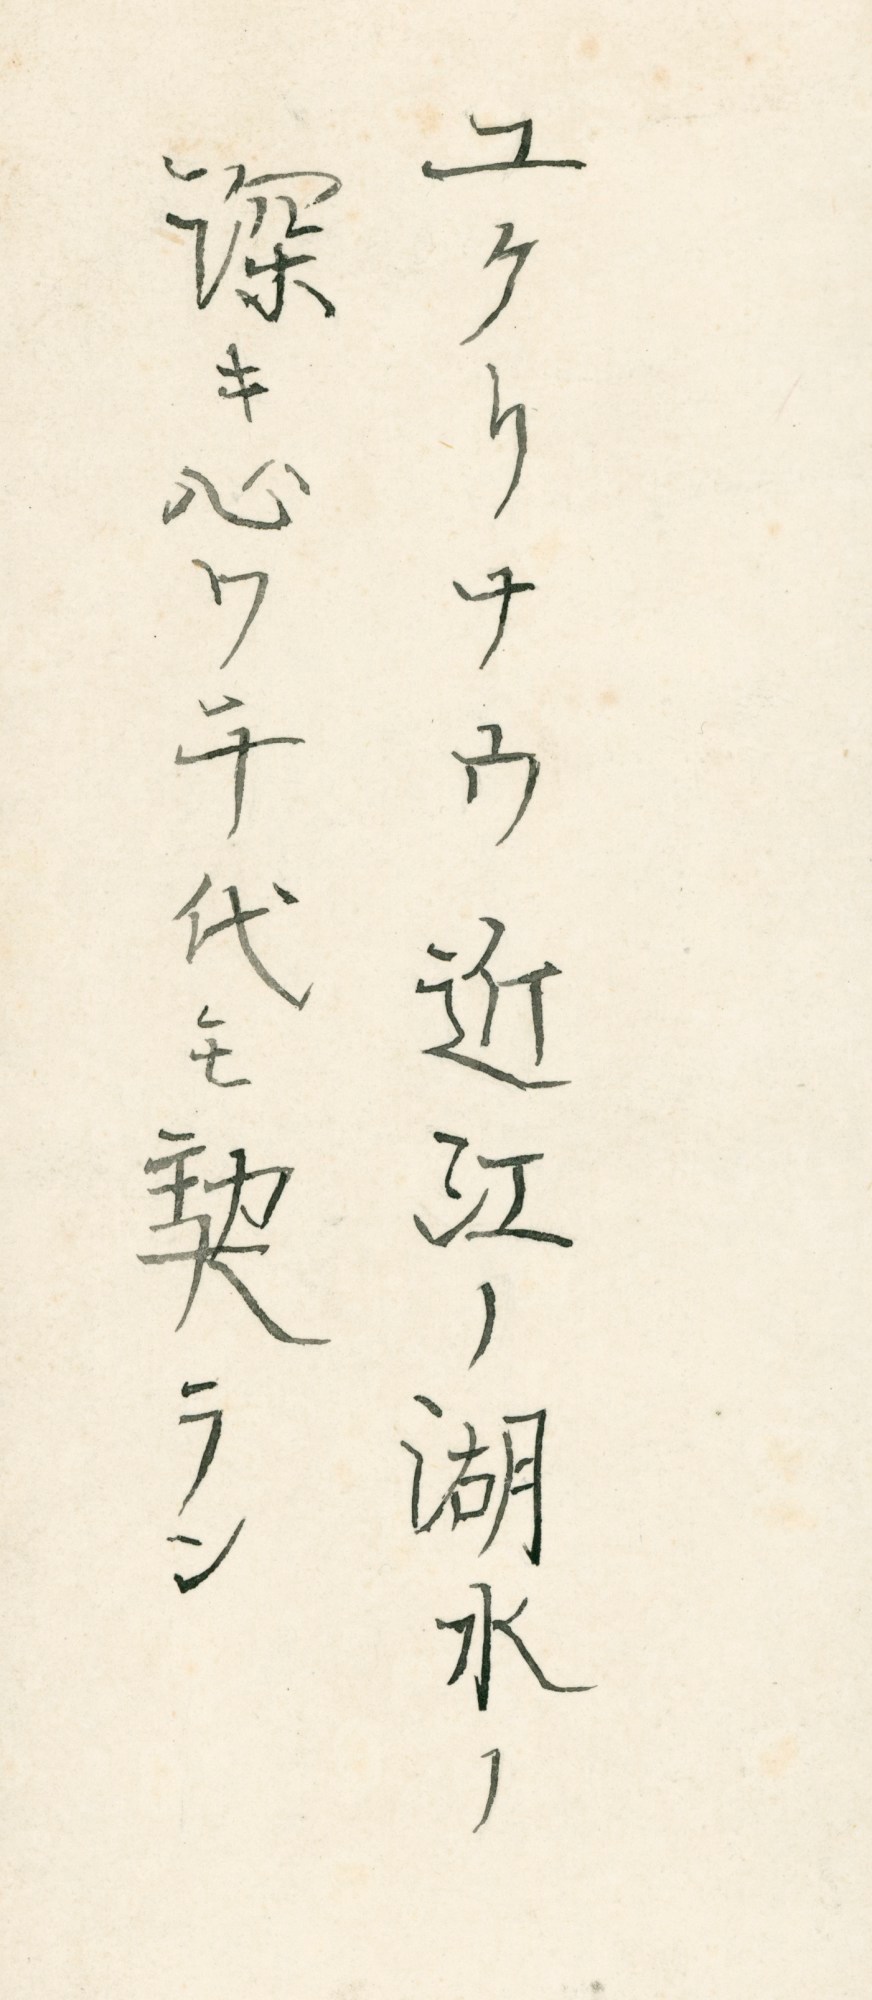 ユクリナウ近江ノ湖水ノ
深キ心ワ千代モ契ラン